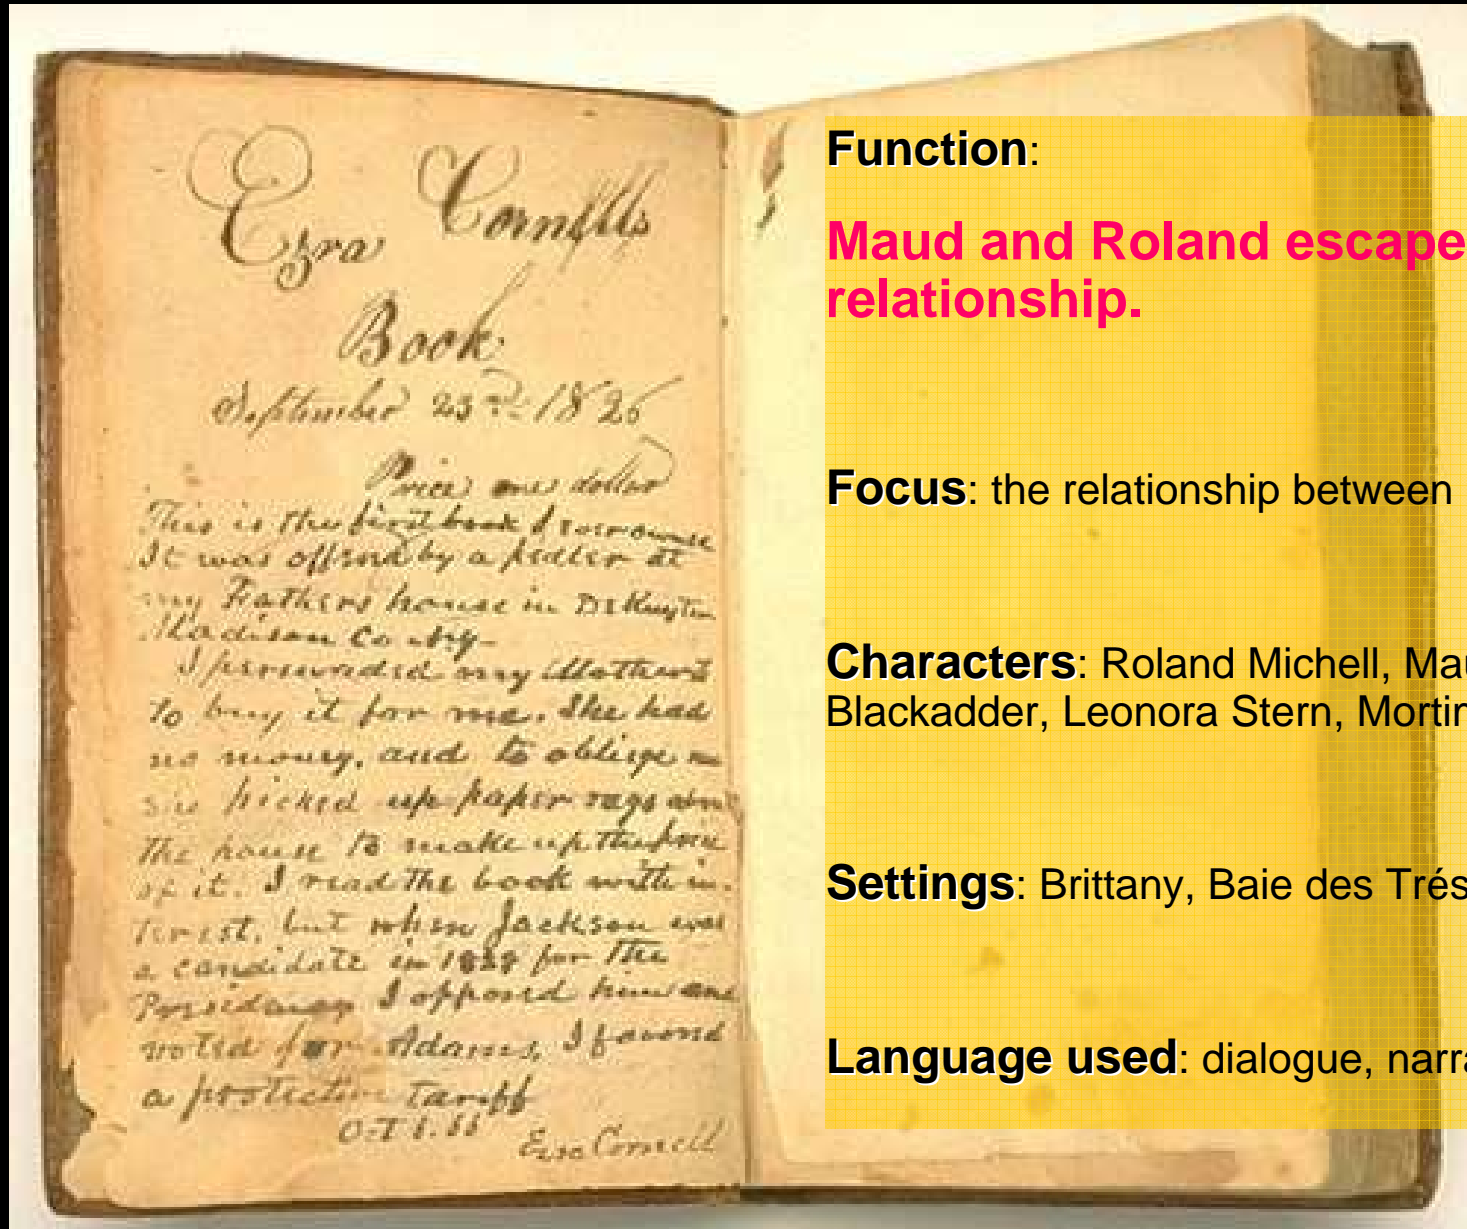 Ezra Cornells
Book
September 23rd 1826
Price one dollar
This is the first book I ever owned
It was offered by a pedler at
my Fathers house in DeRuyter
Madison Co NY
I persuaded my Mother
to buy it for me. She had
no money, and to oblige me
she picked up paper rags
the house to make up the price
of it. I read the book with in-
terest, but when Jackson was
a candidate in 1828 for the
Presidency I opposed him and
voted for Adams, I favored
a protective tariff
Ezra Cornell
Function:
Maud and Roland escape
relationship.
Focus: the relationship between
Characters: Roland Michell, Mau
Blackadder, Leonora Stern, Mortim
Settings: Brittany, Baie des Trés
Language used: dialogue, narra